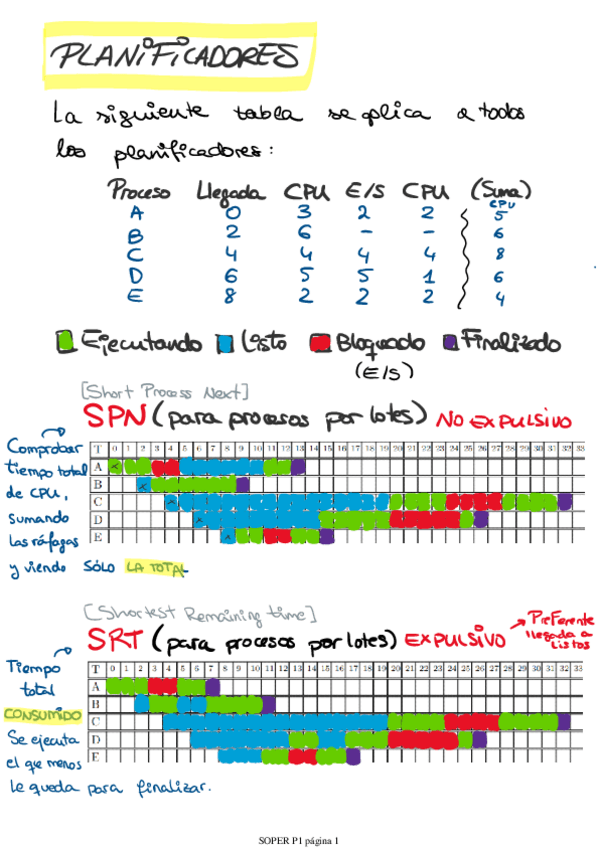 PLANIFICADORES
La siguiente tabla se aplica a todos
los planificadores:
Proceso Llegada CPU E/S CPU (Suma)
CPU
A 0 3 2 2 5
B 2 6 - - 6
C 4 4 4 4 8
D 6 5 5 1 6
E 8 2 2 2 4
Ejecutando Listo Bloqueado Finalizado
(E/S)
[Short Process Next]
SPN (para procesos por lotes) NO EXPULSIVO
Comprobar
tiempo total
de CPU,
sumando
las ráfagas
y viendo SÓLO LA TOTAL
T 0 1 2 3 4 5 6 7 8 9 10 11 12 13 14 15 16 17 18 19 20 21 22 23 24 25 26 27 28 29 30 31 32 33
A x
B x
C x
D x
E x
[Shortest Remaining time]
SRT (para procesos por lotes) EXPULSIVO
Preferente
llegada a
listos
Tiempo
total
CONSUMIDO
Se ejecuta
el que menos
le queda para finalizar.
T 0 1 2 3 4 5 6 7 8 9 10 11 12 13 14 15 16 17 18 19 20 21 22 23 24 25 26 27 28 29 30 31 32 33
A
B
C
D
E
SOPER P1 página 1